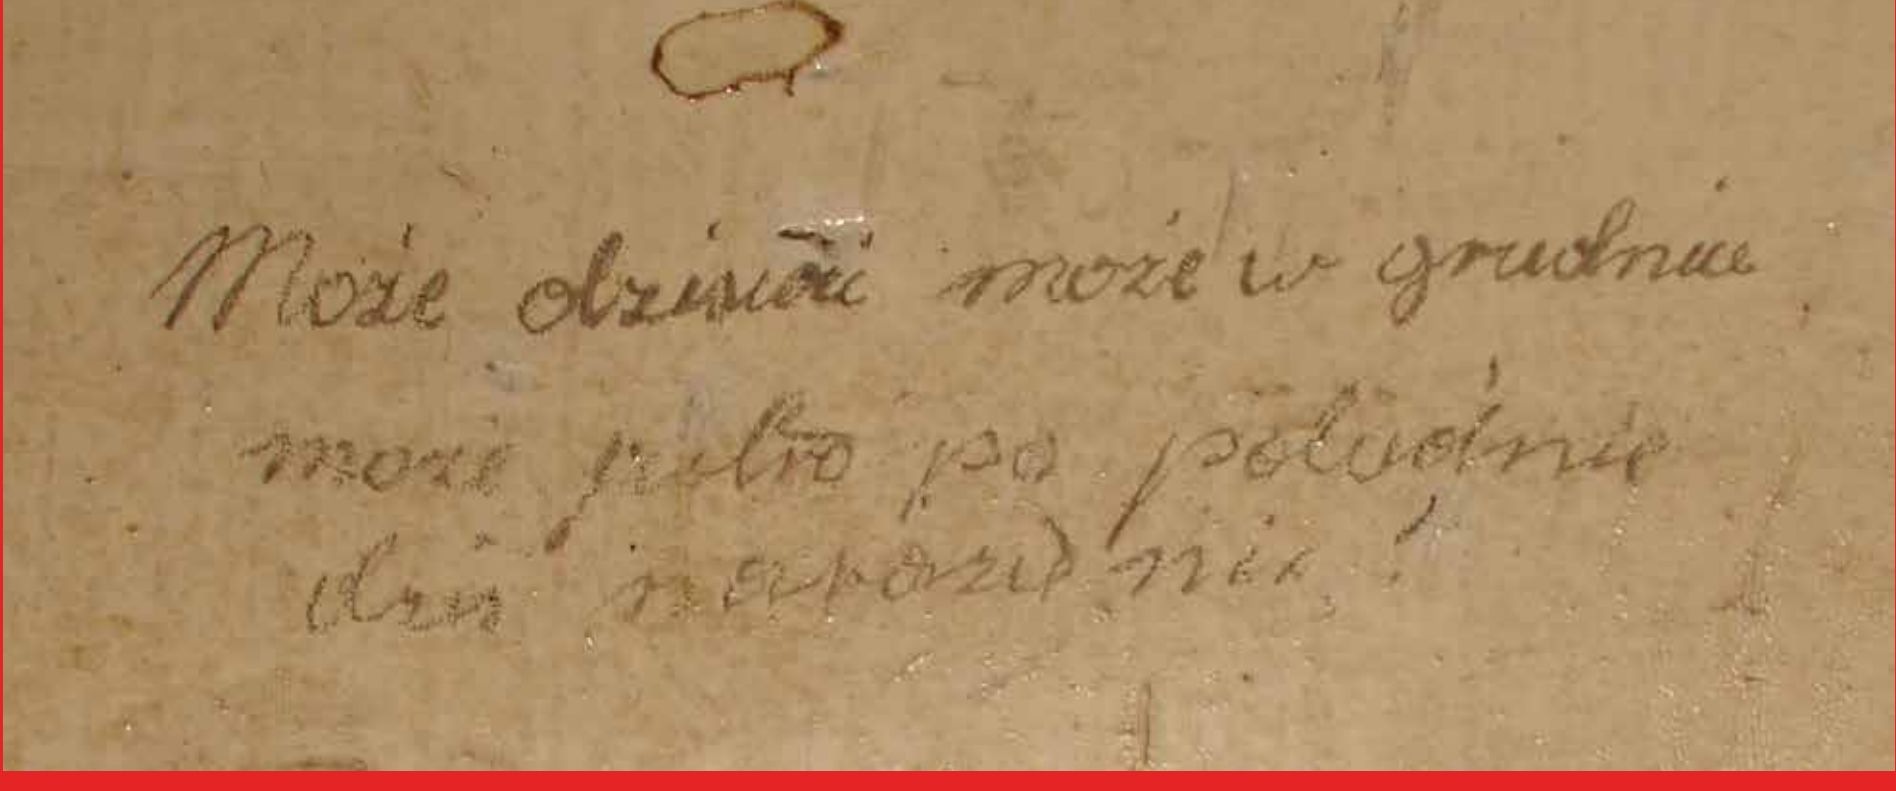 Może dzisiaj może w grudniu
może jutro po południu
dziś narazie nie!